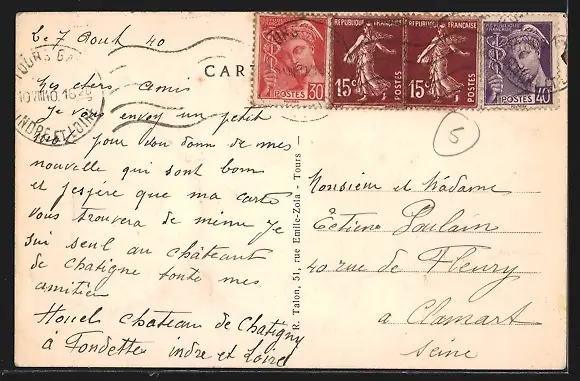 Le 7 Aout 40
CAR
TOURS GARE
INDRE-ET-LOIRE
POSTES 30
REPUBLIQUE FRANÇAISE
15c POSTES
REPUBLIQUE FRANÇAISE
15c POSTES
POSTES 40
5
Mes chers amis
Je vous envoy un petit
mot pour vou donn de mes
nouvelle qui sont bom
et jespére que ma carte
vous trouvera de mème Je
sui seul au châteaut
de chatigne toute mes
amitier
Houel chateau de Chatigny
à Fondette indre et Loire
R. Talon, 51, rue Emile-Zola - Tours
Monsieur et Madame
Ectiene Poulain
40 rue de Fleury
a Clamart
Seine